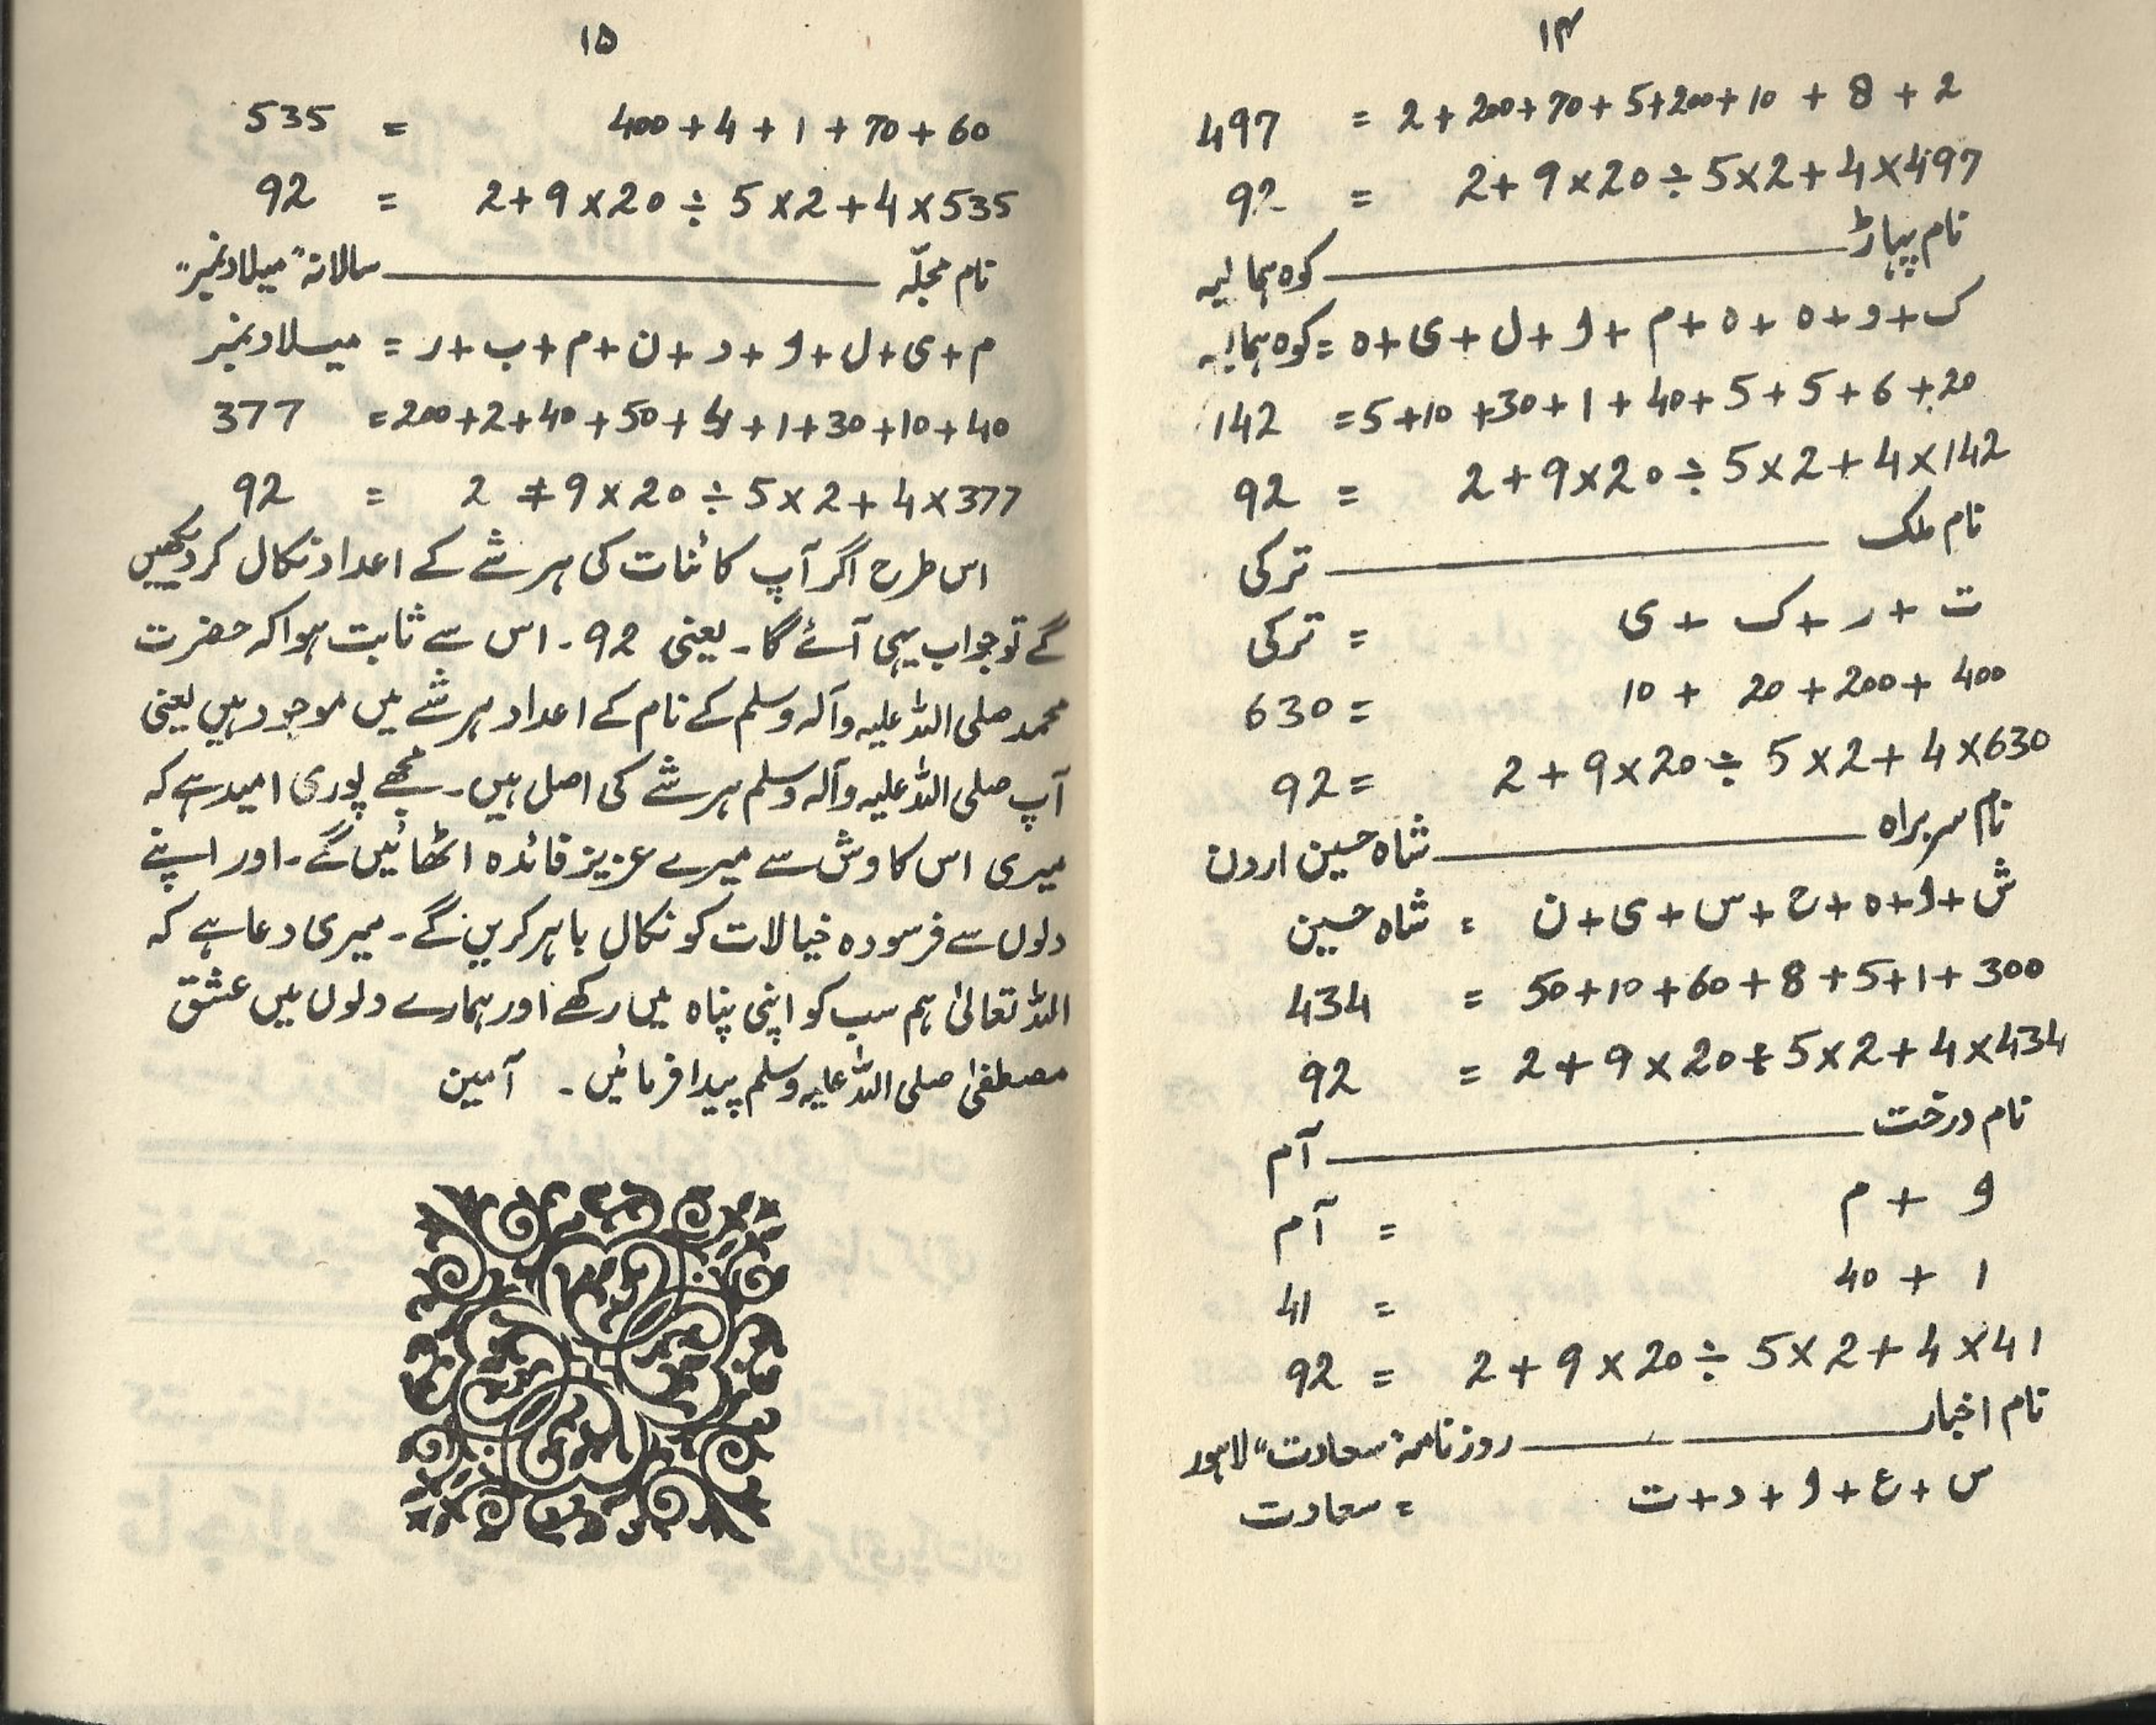 ۱۴
497 = 2 + 200 + 70 + 5 + 200 + 10 + 8 + 2
92 = 2 + 9 × 20 ÷ 5 × 2 + 4 × 497
نام پہاڑ ــــــــــــ کوہ ہمالیہ
ک + و + ہ + ہ + م + ا + ل + ی + ہ = کوہ ہمالیہ
142 = 5 + 10 + 30 + 1 + 40 + 5 + 5 + 6 + 20
92 = 2 + 9 × 20 ÷ 5 × 2 + 4 × 142
نام ملک ــــــــــــ ترکی
ت + ر + ک + ی = ترکی
630 = 10 + 20 + 200 + 400
92 = 2 + 9 × 20 ÷ 5 × 2 + 4 × 630
نام سربراہ ــــــــــــ شاہ حسین اردن
ش + ا + ہ + ح + س + ی + ن = شاہ حسین
434 = 50 + 10 + 60 + 8 + 5 + 1 + 300
92 = 2 + 9 × 20 ÷ 5 × 2 + 4 × 434
نام درخت ــــــــــــ آم
ا + م = آم
41 = 40 + 1
92 = 2 + 9 × 20 ÷ 5 × 2 + 4 × 41
نام اخبار ــــــــــــ روزنامہ "سعادت" لاہور
س + ع + ا + د + ت = سعادت
۱۵
535 = 400 + 4 + 1 + 70 + 60
92 = 2 + 9 × 20 ÷ 5 × 2 + 4 × 535
نام مجلّہ ــــــــــــ سالانہ "میلاد نمبر"
م + ی + ل + ا + د + ن + م + ب + ر = میلاد نمبر
377 = 200 + 2 + 40 + 50 + 4 + 1 + 30 + 10 + 40
92 = 2 + 9 × 20 ÷ 5 × 2 + 4 × 377
اس طرح اگر آپ کائنات کی ہر شے کے اعداد نکال کر دیکھیں
گے تو جواب یہی آئے گا۔ یعنی 92۔ اس سے ثابت ہوا کہ حضرت
محمد صلی اللہ علیہ وآلہ وسلم کے نام کے اعداد ہر شے میں موجود ہیں یعنی
آپ صلی اللہ علیہ وآلہ وسلم ہر شے کی اصل ہیں۔ مجھے پوری امید ہے کہ
میری اس کاوش سے میرے عزیز فائدہ اٹھائیں گے۔ اور اپنے
دلوں سے فرسودہ خیالات کو نکال باہر کریں گے۔ میری دعا ہے کہ
اللہ تعالیٰ ہم سب کو اپنی پناہ میں رکھے اور ہمارے دلوں میں عشق
مصطفیٰ صلی اللہ علیہ وسلم پیدا فرمائیں۔ آمین